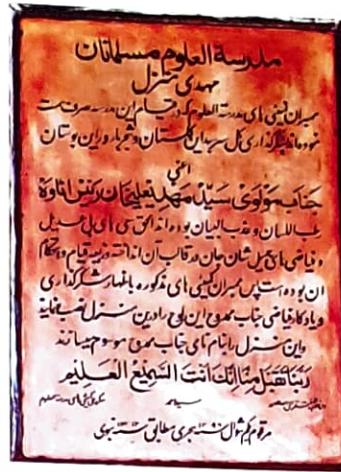 مدرسة العلوم مسلمانان
مهدی منزل
ممبران کمیٹی های مدرسة العلوم که در قیام این مدرسه صرف همت
نموده اند بشکر گذاری گل سر سبد این گلستان و شهریار این بوستان
اعنی
جناب مولوی سید مهدی علیخان رئیس اٹاوه
رطب اللسان و عذب البیان بوده اند الحق سعی های بی عدیل
و فیاضی های جمیل شان جان در قالب آن انداخته و ذریعه قیام و استحکام
آن بوده است پس ممبران کمیٹی های مذکوره باظهار شکر گذاری
و یادگار فیاضی جناب ممدوح این لوح را درین منزل نصب نمایند
و این منزل را بنام نامی جناب ممدوح موسوم میسازند
ربنا تقبل منا انک انت السمیع العلیم
مرقوم یکم شوال هجری مطابق نبوی